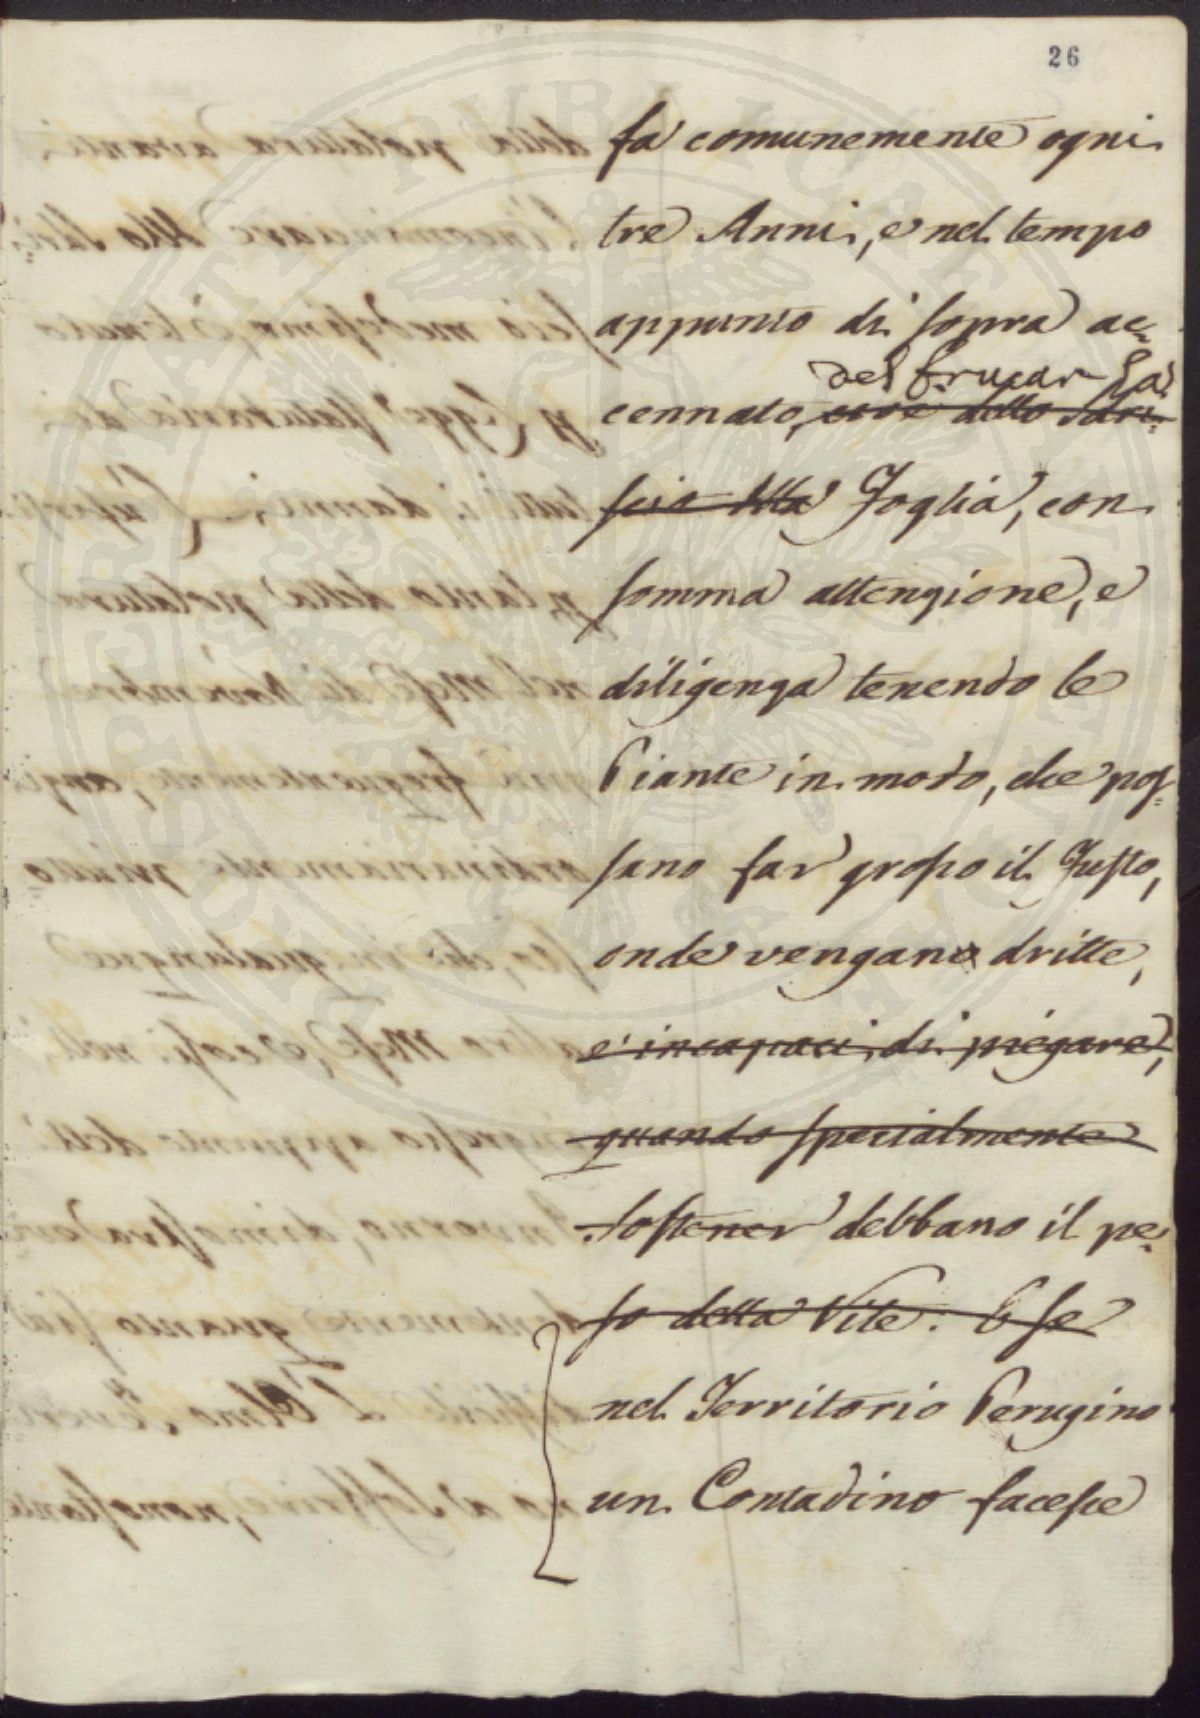 26
fa comunemente ogni
tre Anni, e nel tempo
appunto di sopra ac-
del brucar la
cennato, cioè dello sdri-
scio della Foglia, con
somma attenzione, e
diligenza tenendo le
Piante in modo, che pos-
sano far grosso il Fusto,
onde vengano dritte,
e incapaci di piegare,
quando specialmente
sostener debbano il pe-
so della Vite. E se
nel Territorio Perugino
un Contadino facesse